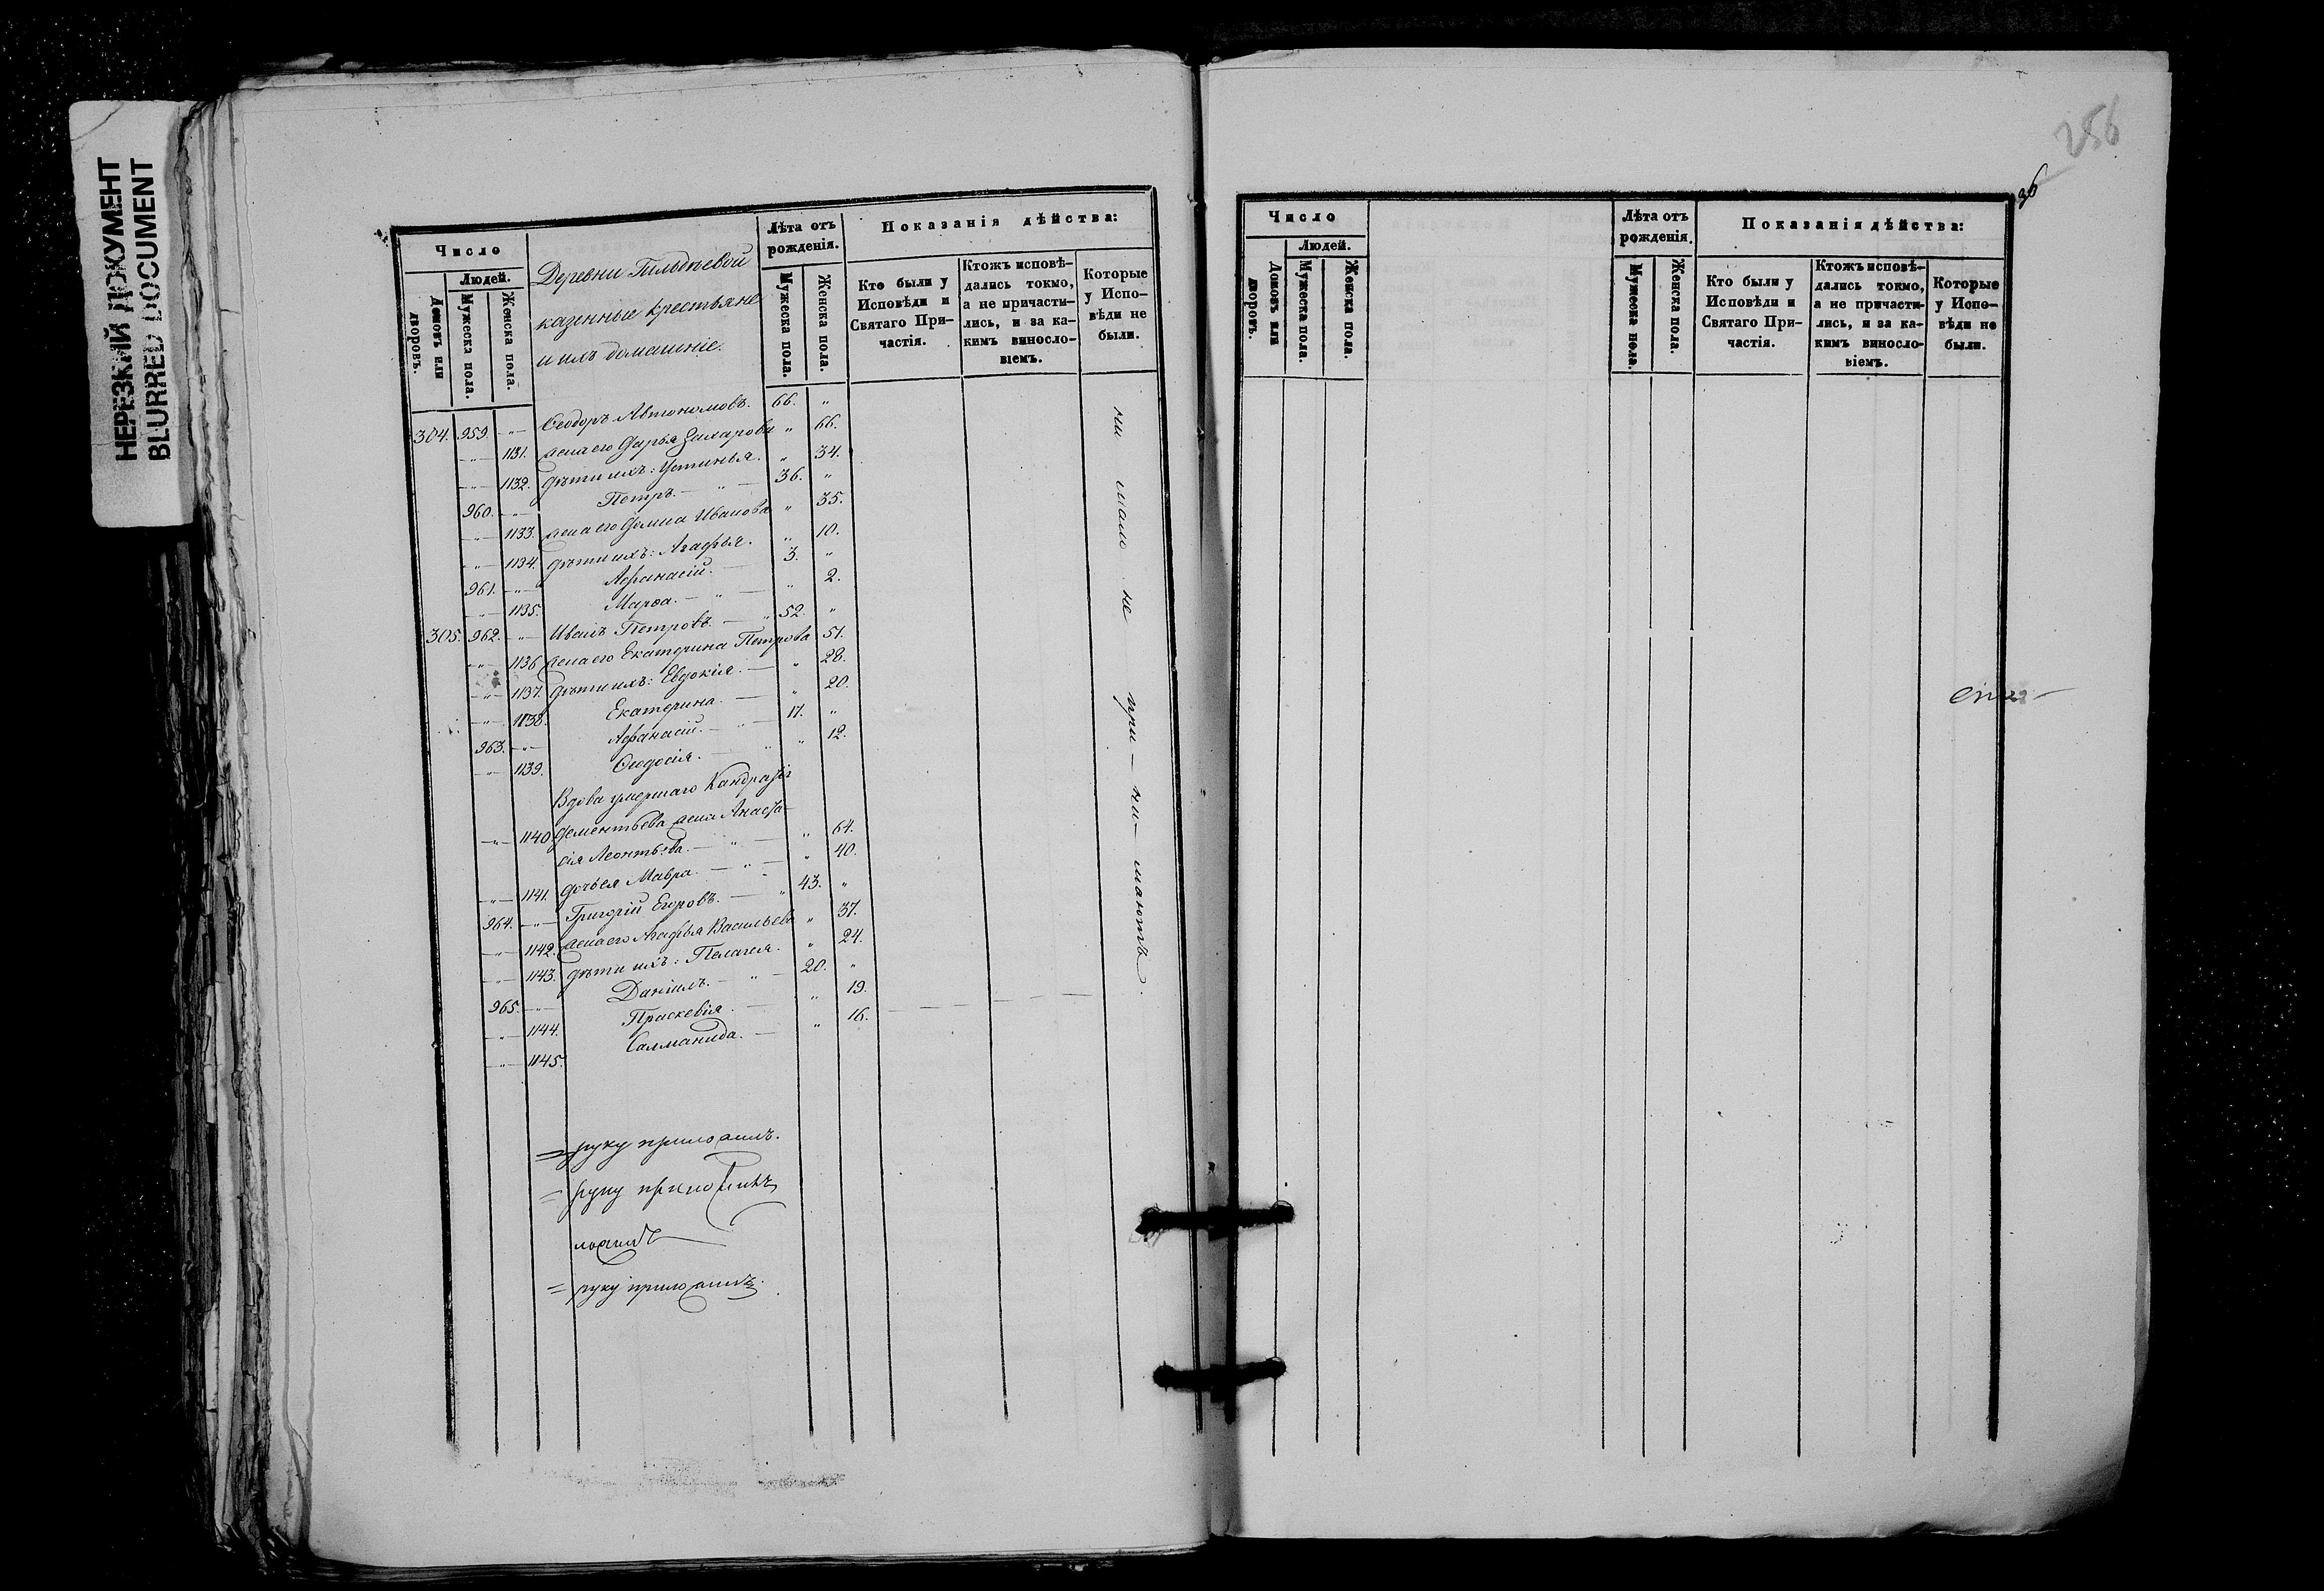 НЕРЕЗКИЙ ДОКУМЕНТ
BLURRED DOCUMENT
Число
Людей.
Домовъ или дворовъ.
Мужеска пола.
Женска пола.
Деревни
казенные крестьяне
и ихъ домашніе.
Лѣта отъ рожденія.
Мужеска пола.
Женска пола.
Показанія дѣйства:
Кто были у Исповѣди и Святаго При-
частія.
Ктожъ исповѣ-
дались токмо,
а не причасти-
лись, и за ка-
кимъ винosло-
віемъ.
Которые
у Испо-
вѣди не
были.
304. 959. -"- Ѳеодоръ Автономовъ. 66. "
-"- 1131. жена его Дарья Захарова " 66.
-"- 1132. дѣти ихъ: Устинья. " 34.
960. -"- Петръ. - " - 36. "
-"- 1133. жена его Домна Иванова " 35.
-"- 1134. дѣти ихъ: Агафья. " 10.
961. -"- Афанасій. - 3. "
-"- 1135. Марѳа. - " - " 2.
305. 962. -"- Иванъ Петровъ. - " 52. "
-"- 1136 жена его Екатерина Петрова 51.
-"- 1137. дѣти ихъ: Евдокія. - " 28.
-"- 1138. Екатерина. - " 20.
963. -"- Афанасій. - " - 17. "
-"- 1139. Ѳеодосія. - " " 12.
Вдова умершаго Кандратія
-"- 1140 Дементьева жена Анаста-
сія Леонтьева. - " - " 64.
-"- 1141. дочь ея Мавра. - " - " 40.
964. -"- Григорій Егоровъ. - " 43. "
-"- 1142. жена его Агафья Васильева " 37.
-"- 1143. дѣти ихъ: Пелагея. " 24.
965. -"- Даніилъ. - " - 20. "
-"- 1144. Праскевія. - " 19.
-"- 1145. Саломанида. - " 16.
= руку приложилъ.
= руку приложилъ
ложилъ
= руку приложилъ.
256
36
Число
Людей.
Домовъ или дворовъ.
Мужеска пола.
Женска пола.
Лѣта отъ рожденія.
Мужеска пола.
Женска пола.
Показанія дѣйства:
Кто были у
Исповѣди и
Святаго При-
частія.
Ктожъ исповѣ-
дались токмо,
а не причасти-
лись, и за ка-
кимъ винosло-
віемъ.
Которые
у Испо-
вѣди не
были.